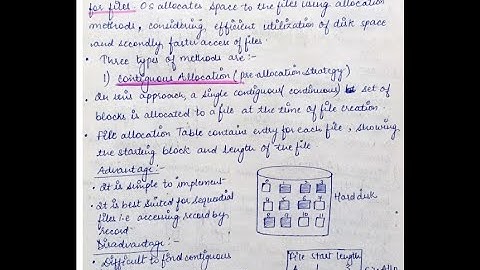 for files. OS allocates space to the files using allocation
methods, considering, efficient utilization of disk space
and secondly, faster access of files.
• Three types of methods are:-
1) Contiguous Allocation (pre allocation strategy)
• In this approach, a single contiguous (continuous) set of
blocks is allocated to a file at the time of file creation.
• File allocation Table contains entry for each file, showing
the starting block and length of the file
Advantage:-
• It is simple to implement
• It is best suited for sequential
files i.e accessing record by
record
Disadvantage:-
• Difficult to find contiguous
Hard disk
File start length